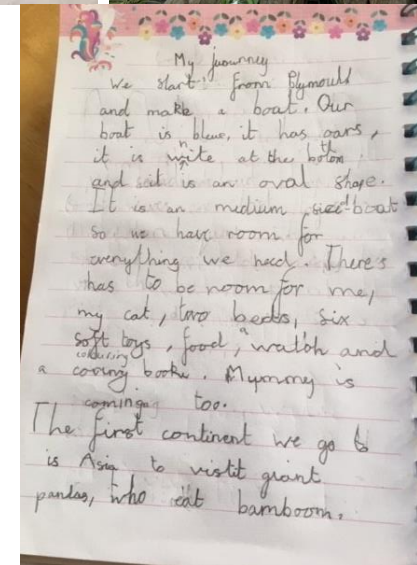 My juourney
We start from Plymouth
and make a boat. Our
boat is blue, it has oars,
it is white at the bottom
and is an oval shape.
It is an medium boat
so we have room for
everything we need. There's
has to be room for me,
my cat, two beds, six
soft toys, food, a watch and
colouring
a coving booke. Mymmy is
coming too.
The first continent we go to
is Asia to vistit giant
pandas, who eat bamboom.